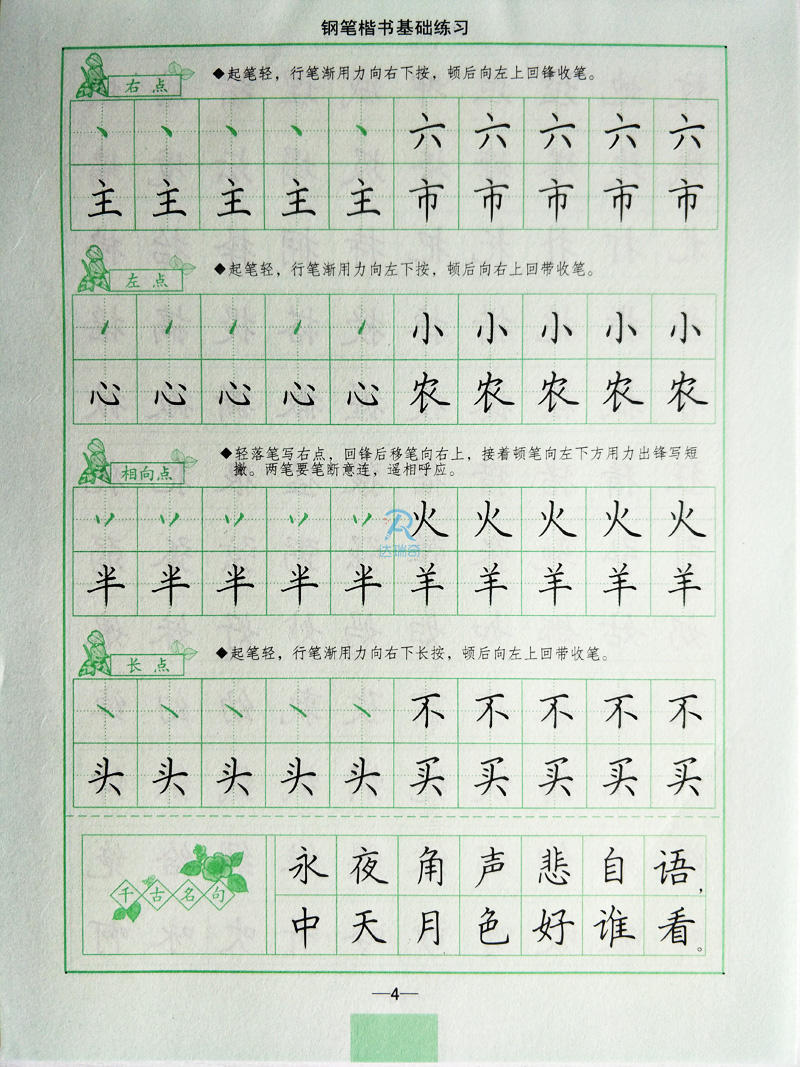 钢笔楷书基础练习
右点
◆起笔轻，行笔渐用力向右下按，顿后向左上回锋收笔。
丶丶丶丶丶六六六六六
主主主主主市市市市市
左点
◆起笔轻，行笔渐用力向左下按，顿后向右上回带收笔。
小小小小小
心心心心心农农农农农
相向点
◆轻落笔写右点，回锋后移笔向右上，接着顿笔向左下方用力出锋写短
撇。两笔要笔断意连，遥相呼应。
火火火火火
达瑞奇
半半半半半羊羊羊羊羊
长点
◆起笔轻，行笔渐用力向右下长按，顿后向左上回带收笔。
丶丶丶丶丶不不不不不
头头头头头买买买买买
千古名句
永夜角声悲自语，
中天月色好谁看。
—4—